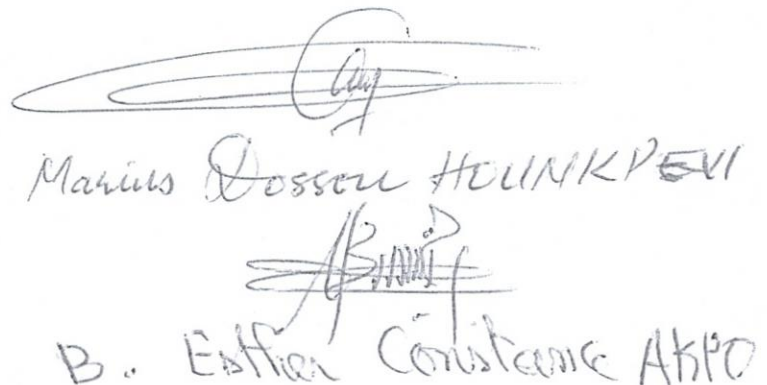 Marius Dossou HOUNKPEVI
B. Esther Constance AKPO